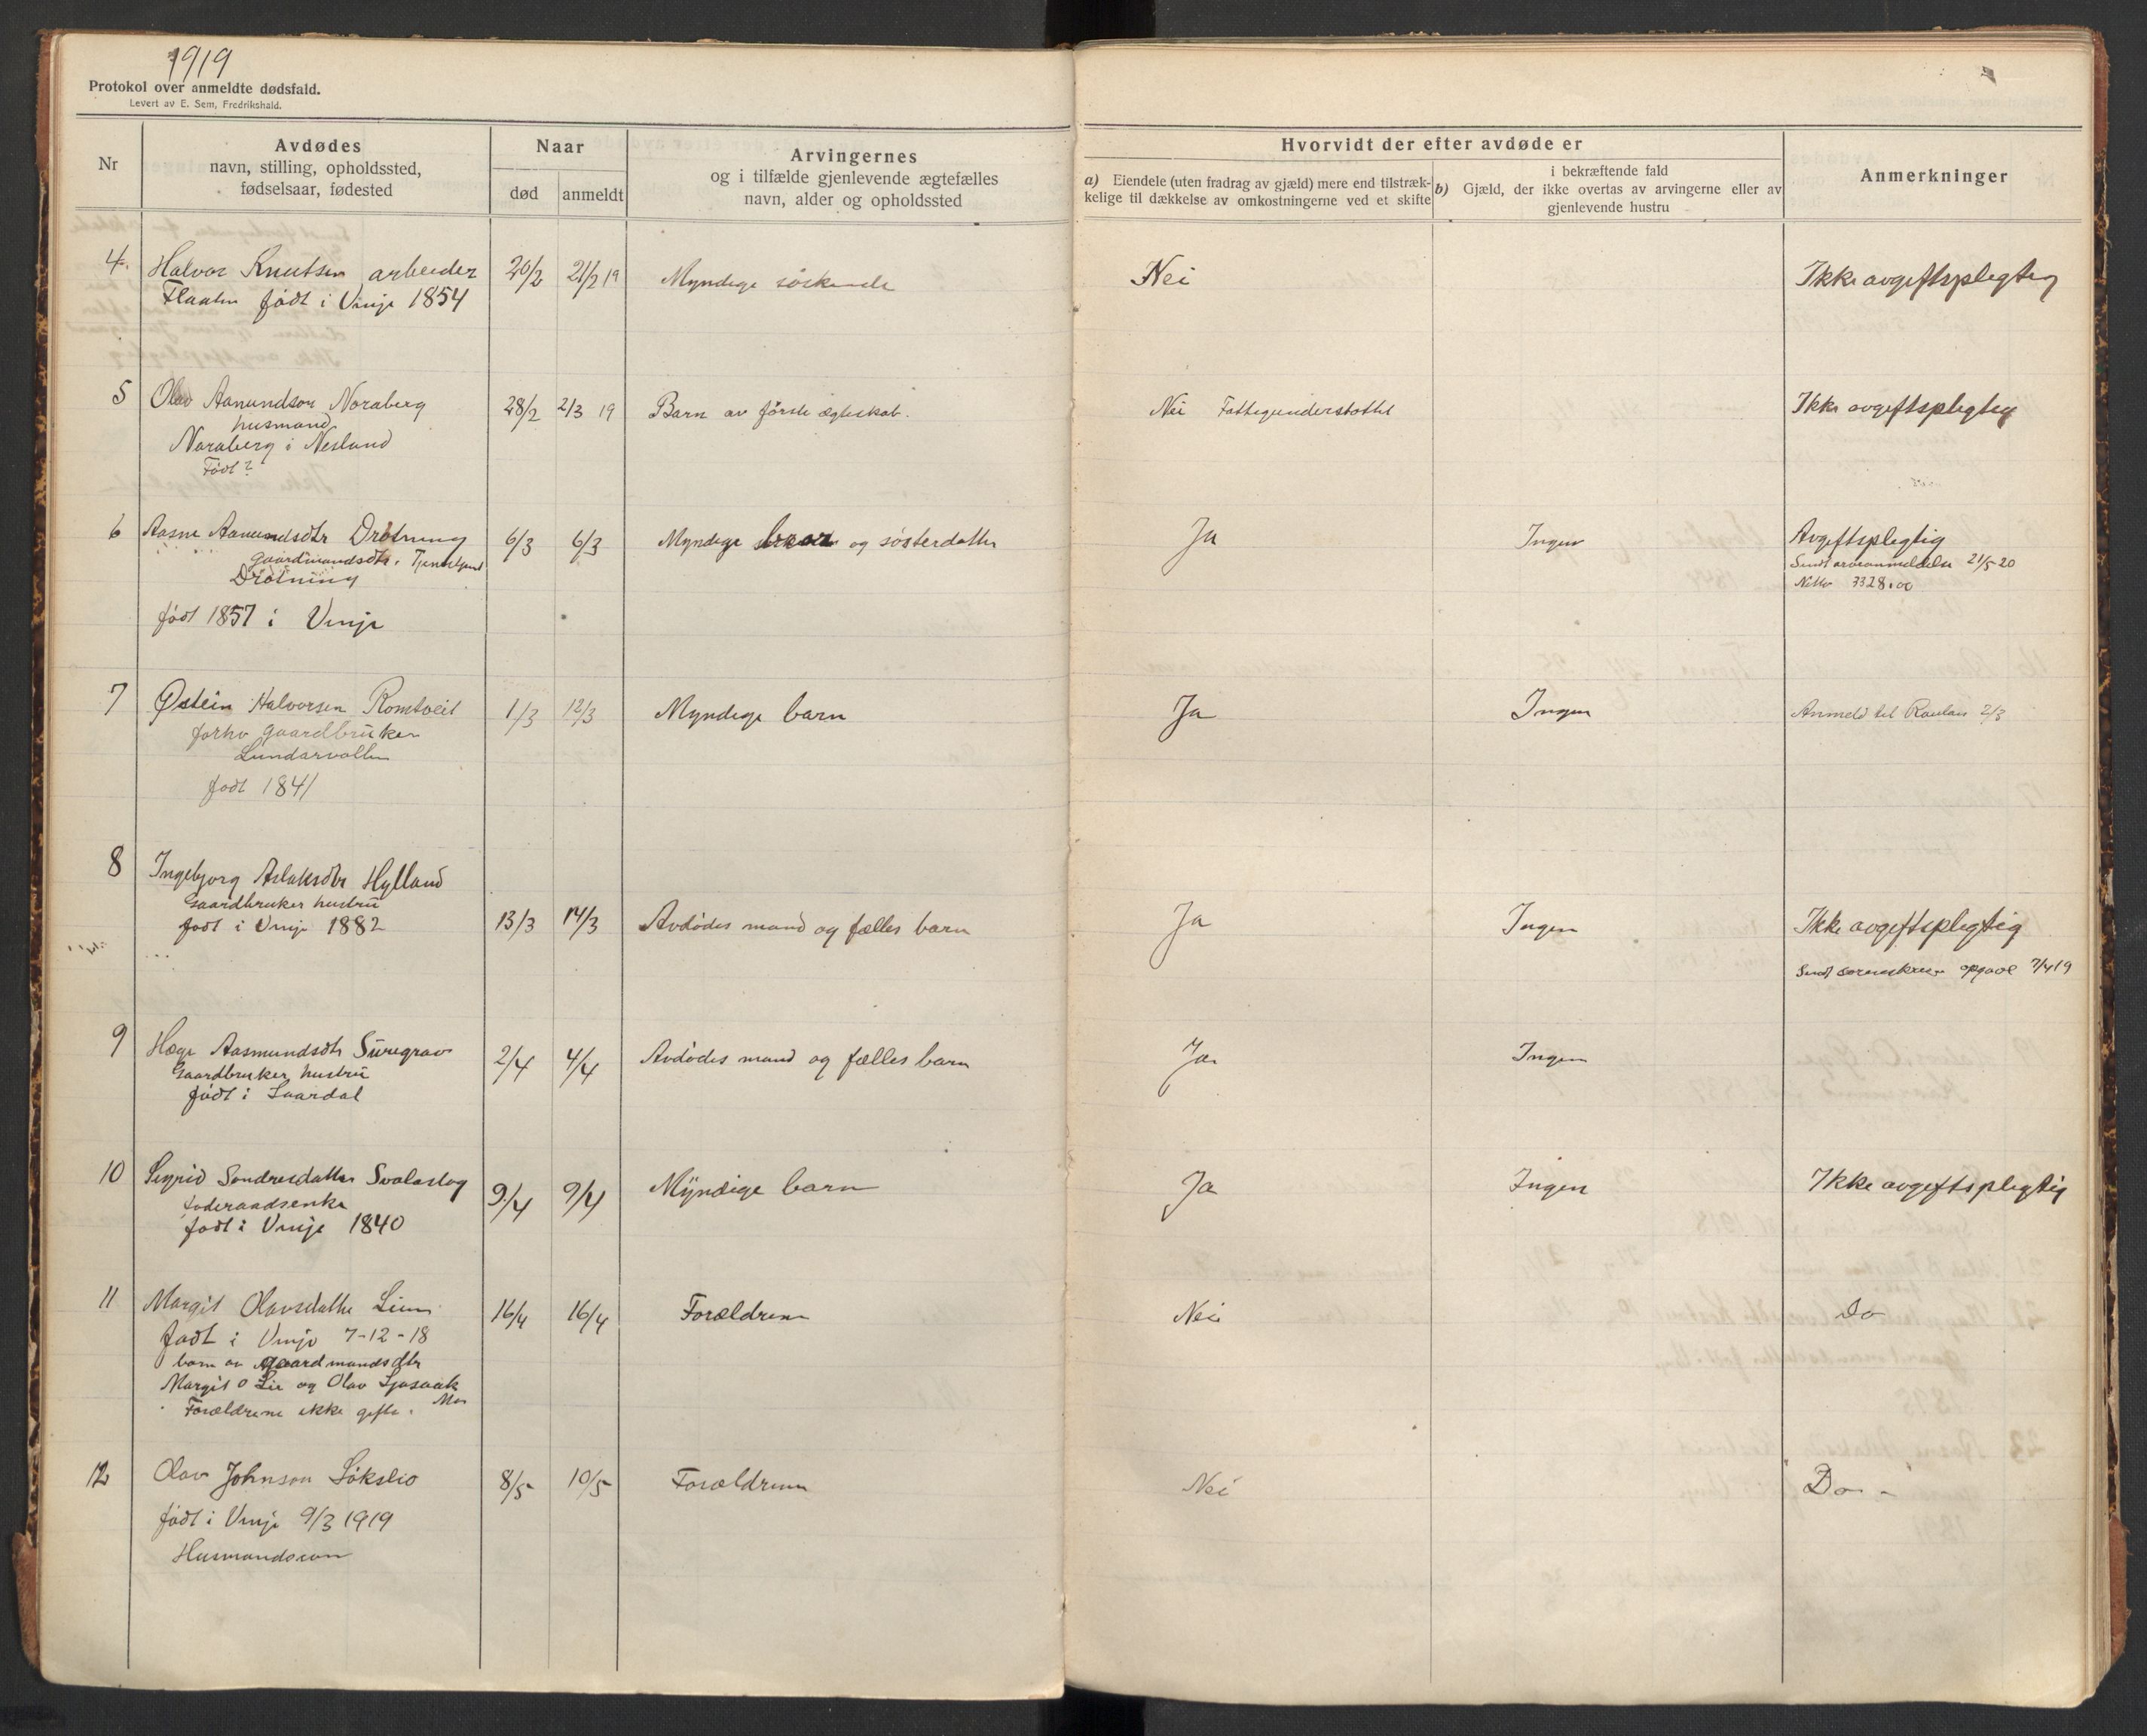 1919
Protokol over anmeldte dødsfald.
Levert av E. Sem, Fredrikshald.
Nr
Avdødes
navn, stilling, opholdssted,
fødselsaar, fødested
Naar
død
anmeldt
Arvingernes
og i tilfælde gjenlevende ægtefælles
navn, alder og opholdssted
Hvorvidt der efter avdøde er
a) Eiendele (uten fradrag av gjæld) mere end tilstræk-
kelige til dækkelse av omkostningerne ved et skifte
i bekræftende fald
b) Gjæld, der ikke overtas av arvingerne eller av
gjenlevende hustru
Anmerkninger
4. Halvor Knutsen arbeider 20/2 21/2 19 Myndige søskende Nei Ikke avgiftspligtig
Flaaten født i Vinje 1854
5 Olav Aamundson Noraberg 28/2 2/3 19 Barn av første ægteskab. Nei Fattigunderstøttet Ikke avgiftspligtig
husmand
Noraberg i Nesland
Født?
6 Aasne Aamundsdtr Drotning 6/3 6/3 Myndige og søsterdatter Ja Ingen Avgiftspligtig
Gaardmandsdtr.
Sendt arveanmeldelse 21/5 20
Drotning
Netto 3328.00
født 1857 i Vinje
7 Østein Halvorsen Romtveit 1/3 12/3 Myndige barn Ja Ingen Anmeld til Rauland 2/3
forhv gaardbruker
Lundarvollen
født 1841
8 Ingebjorg Aslaksdtr Hylland
Gaardbruker hustru
født i Vinje 1882 13/3 14/3 Avdødes mand og fælles barn Ja Ingen Ikke avgiftspligtig
Sendt sorenskriver opgave 7/4 19
9 Hæge Aasmundsdtr Suregrav 2/4 4/4 Avdødes mand og fælles barn Ja Ingen
Gaardbruker hustru
født i Laardal
10 Sigrid Sondresdatter Svalastog 9/4 9/4 Myndige barn Ja Ingen Ikke avgiftspligtig
Foderaadsenke
født i Vinje 1840
11 Margit Olavsdatter Lien 16/4 16/4 Forældrene Nei Do
født i Vinje 7-12-18
barn av gaardmandsdtr
Margit O Lie og Olav
Forældrene ikke gifte.
12 Olav Johnson Løkslid 8/5 10/5 Forældrene Nei Do -
født i Vinje 9/3 1919
Husmandssøn